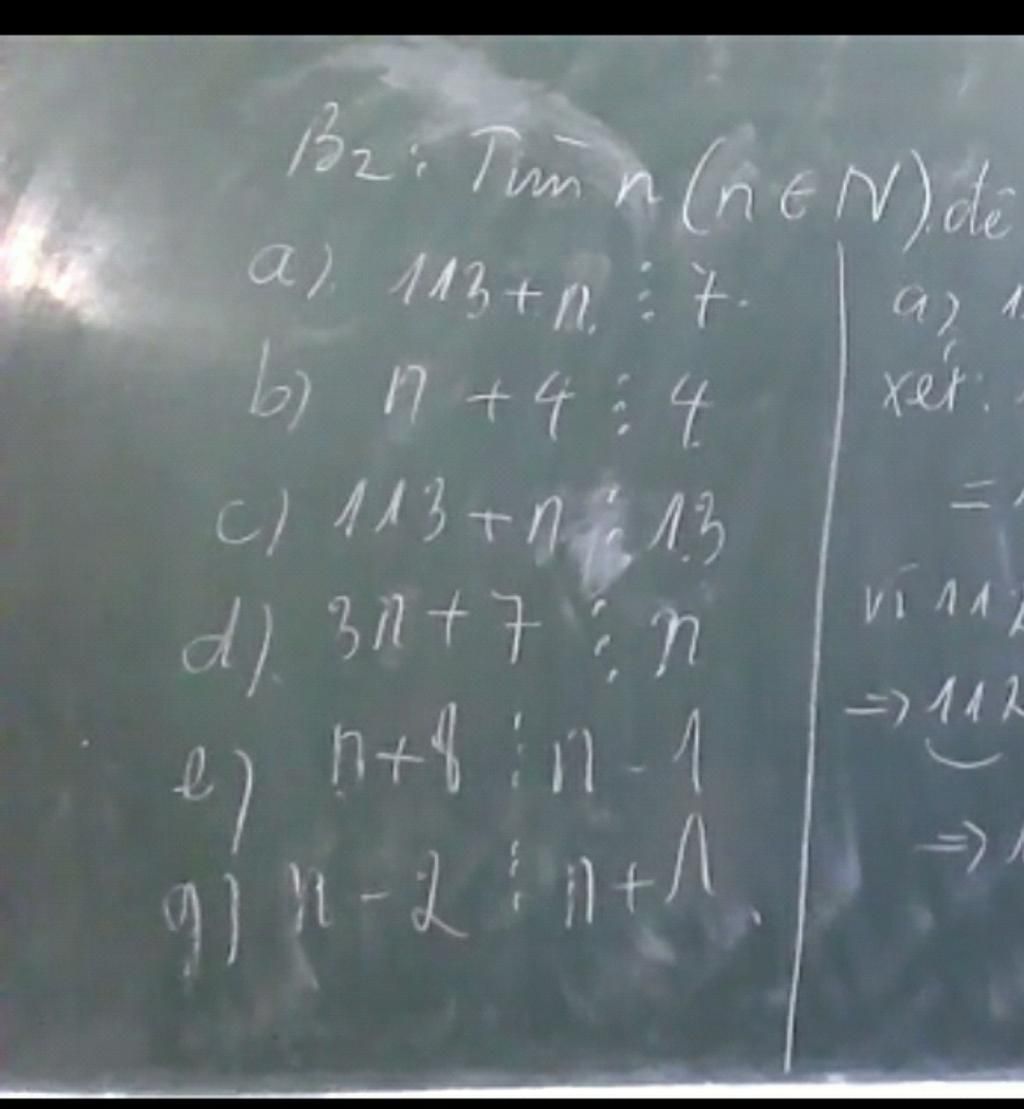 B2: Tìm n (n ∈ N) để
a) 113 + n ⋮ 7.
b) n + 4 ⋮ 4
c) 113 + n ⋮ 13
d) 3n + 7 ⋮ n
e) n + 8 ⋮ n - 1
g) n - 2 ⋮ n + 1
a) 1
xét:
= 1
vì 112
=> 112
=> 1